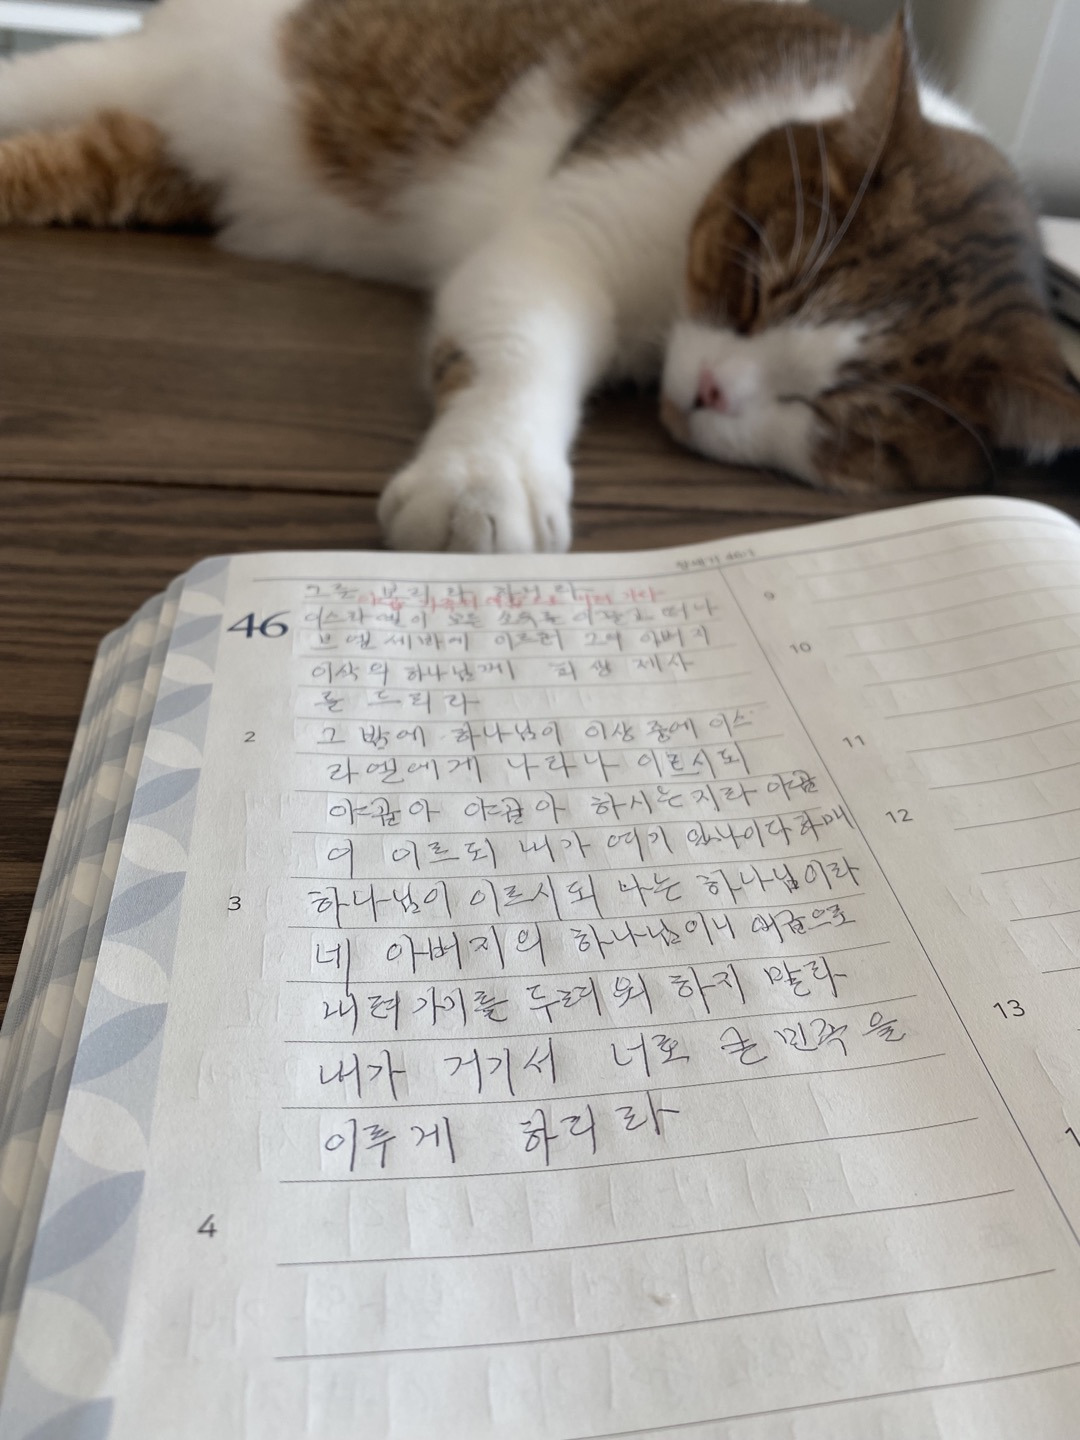 창세기 46:1
그를 보리라 하니라
야곱 가족이 애굽으로 내려가다
46
이스라엘이 모든 소유를 이끌고 떠나
브엘세바에 이르러 그의 아버지
이삭의 하나님께 희생 제사
를 드리라
2
그 밤에 하나님이 이상 중에 이스
라엘에게 나타나 이르시되
야곱아 야곱아 하시는지라 야곱
이 이르되 내가 여기 있나이다 하매
3
하나님이 이르시되 나는 하나님이라
네 아버지의 하나님이니 애굽으로
내려가기를 두려워 하지 말라
내가 거기서 너로 큰 민족을
이루게 하리라
4
9
10
11
12
13